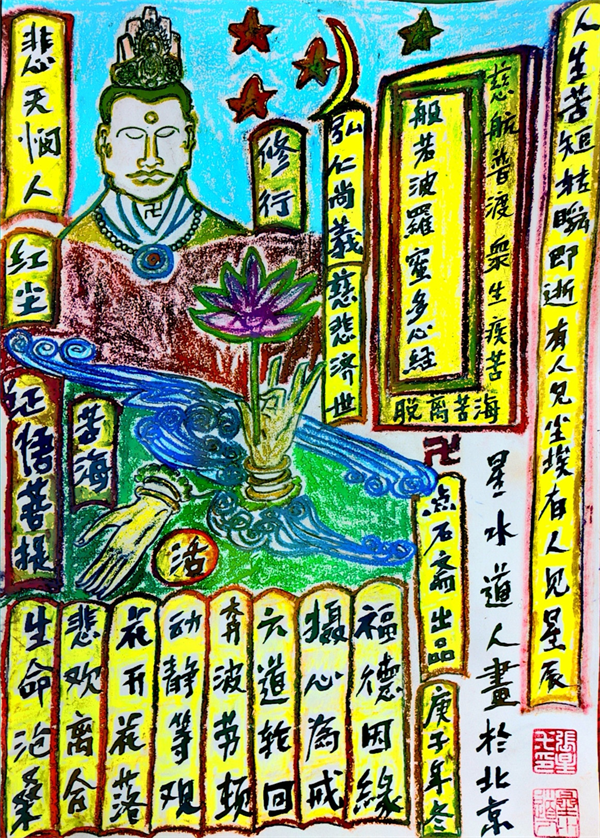 人生苦短瞬即逝有人见尘埃有人见星辰
慈航普渡衆生疾苦
脱离苦海
般若波羅蜜多心经
弘仁尚義慈悲济世
修行
悲天悯人
红尘
证悟菩提
苦海
活
星水道人畫於北京
点石斋出品
庚子年冬
福德因緣
摄心為戒
六道轮回
奔波劳顿
动静等观
花开花落
悲欢离合
生命沧桑